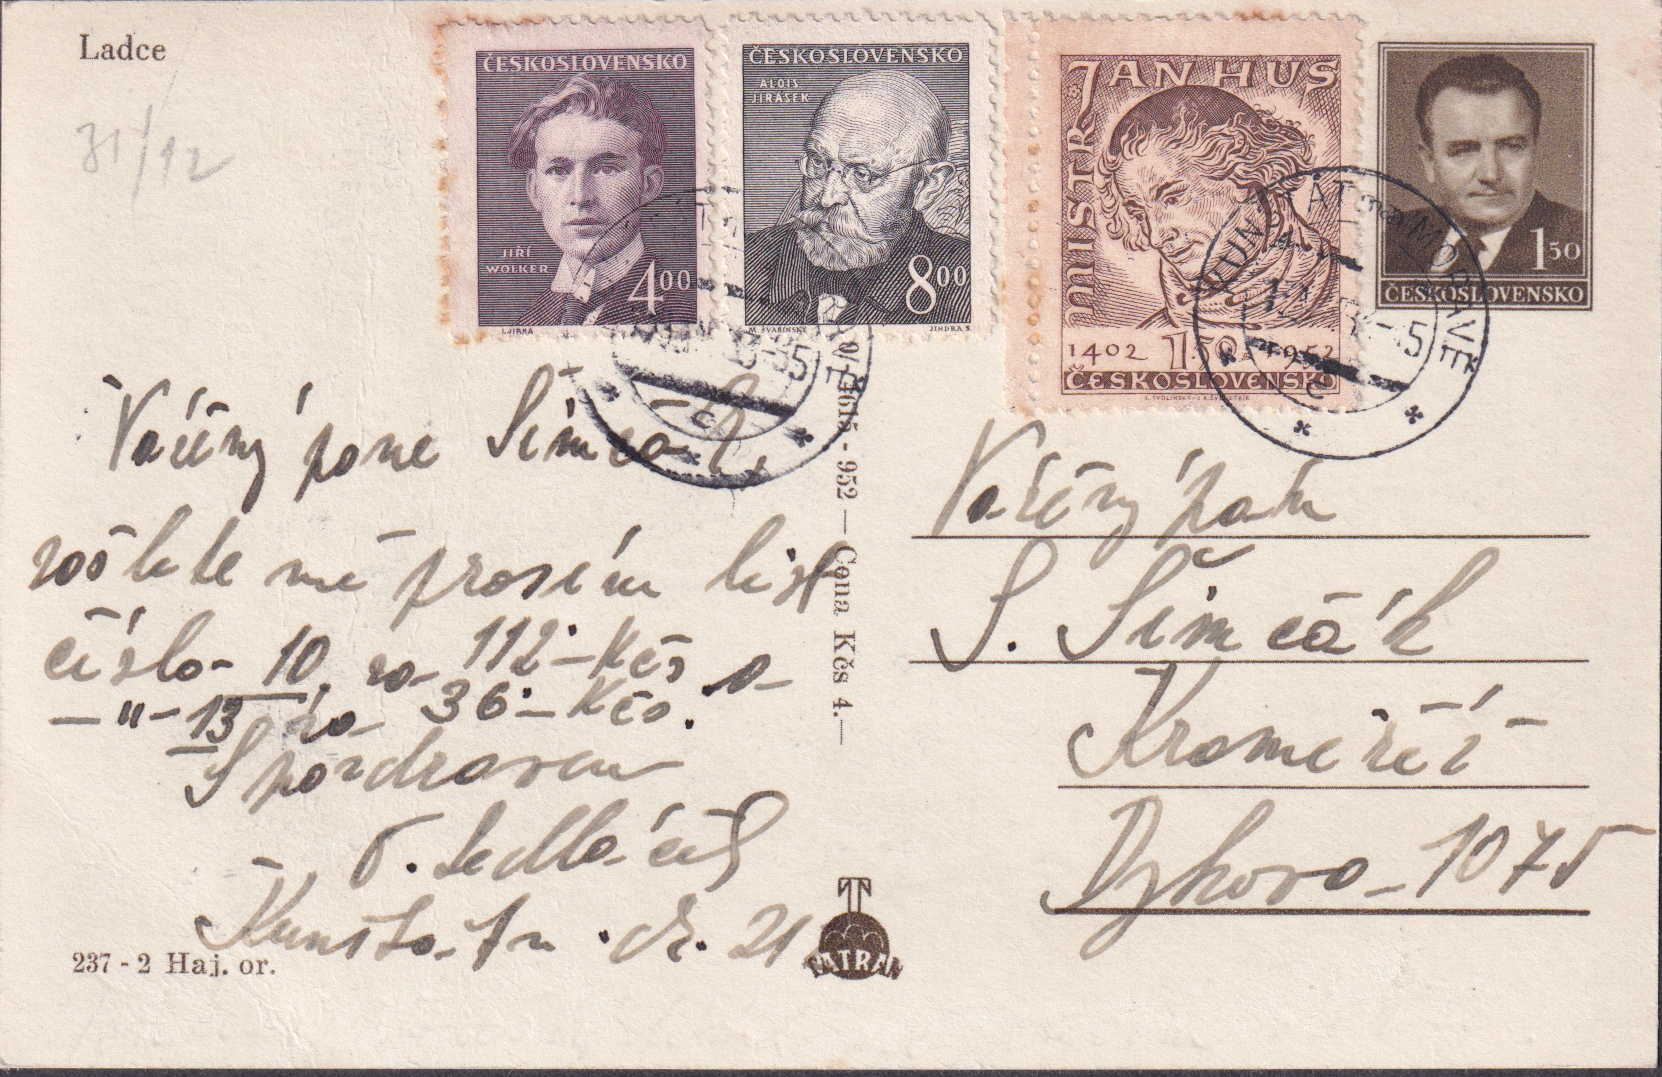 Ladce
31/12
ČESKOSLOVENSKO
JIŘÍ
WOLKER
4 00
I. JIRKA
ČESKOSLOVENSKO
ALOIS
JIRÁSEK
8 00
M. ŠVABINSKÝ JINDRA S.
MISTR JAN HUS
1402 1.50 1952
ČESKOSLOVENSKO
1 50
ČESKOSLOVENSKO
KUNŠTÁT na MORAVĚ
Vážený pane Simčák,
zašlete mě prosím list
číslo 10 za 112·-Kčs a
-"- 13 za 36·-Kčs.
S pozdravem
Sedláček
Kunštát čís. 21
952 — Cena Kčs 4.—
Vážený pán
S. Šimčák
Kroměříž
1075
237 - 2 Haj. or.
TATRAN